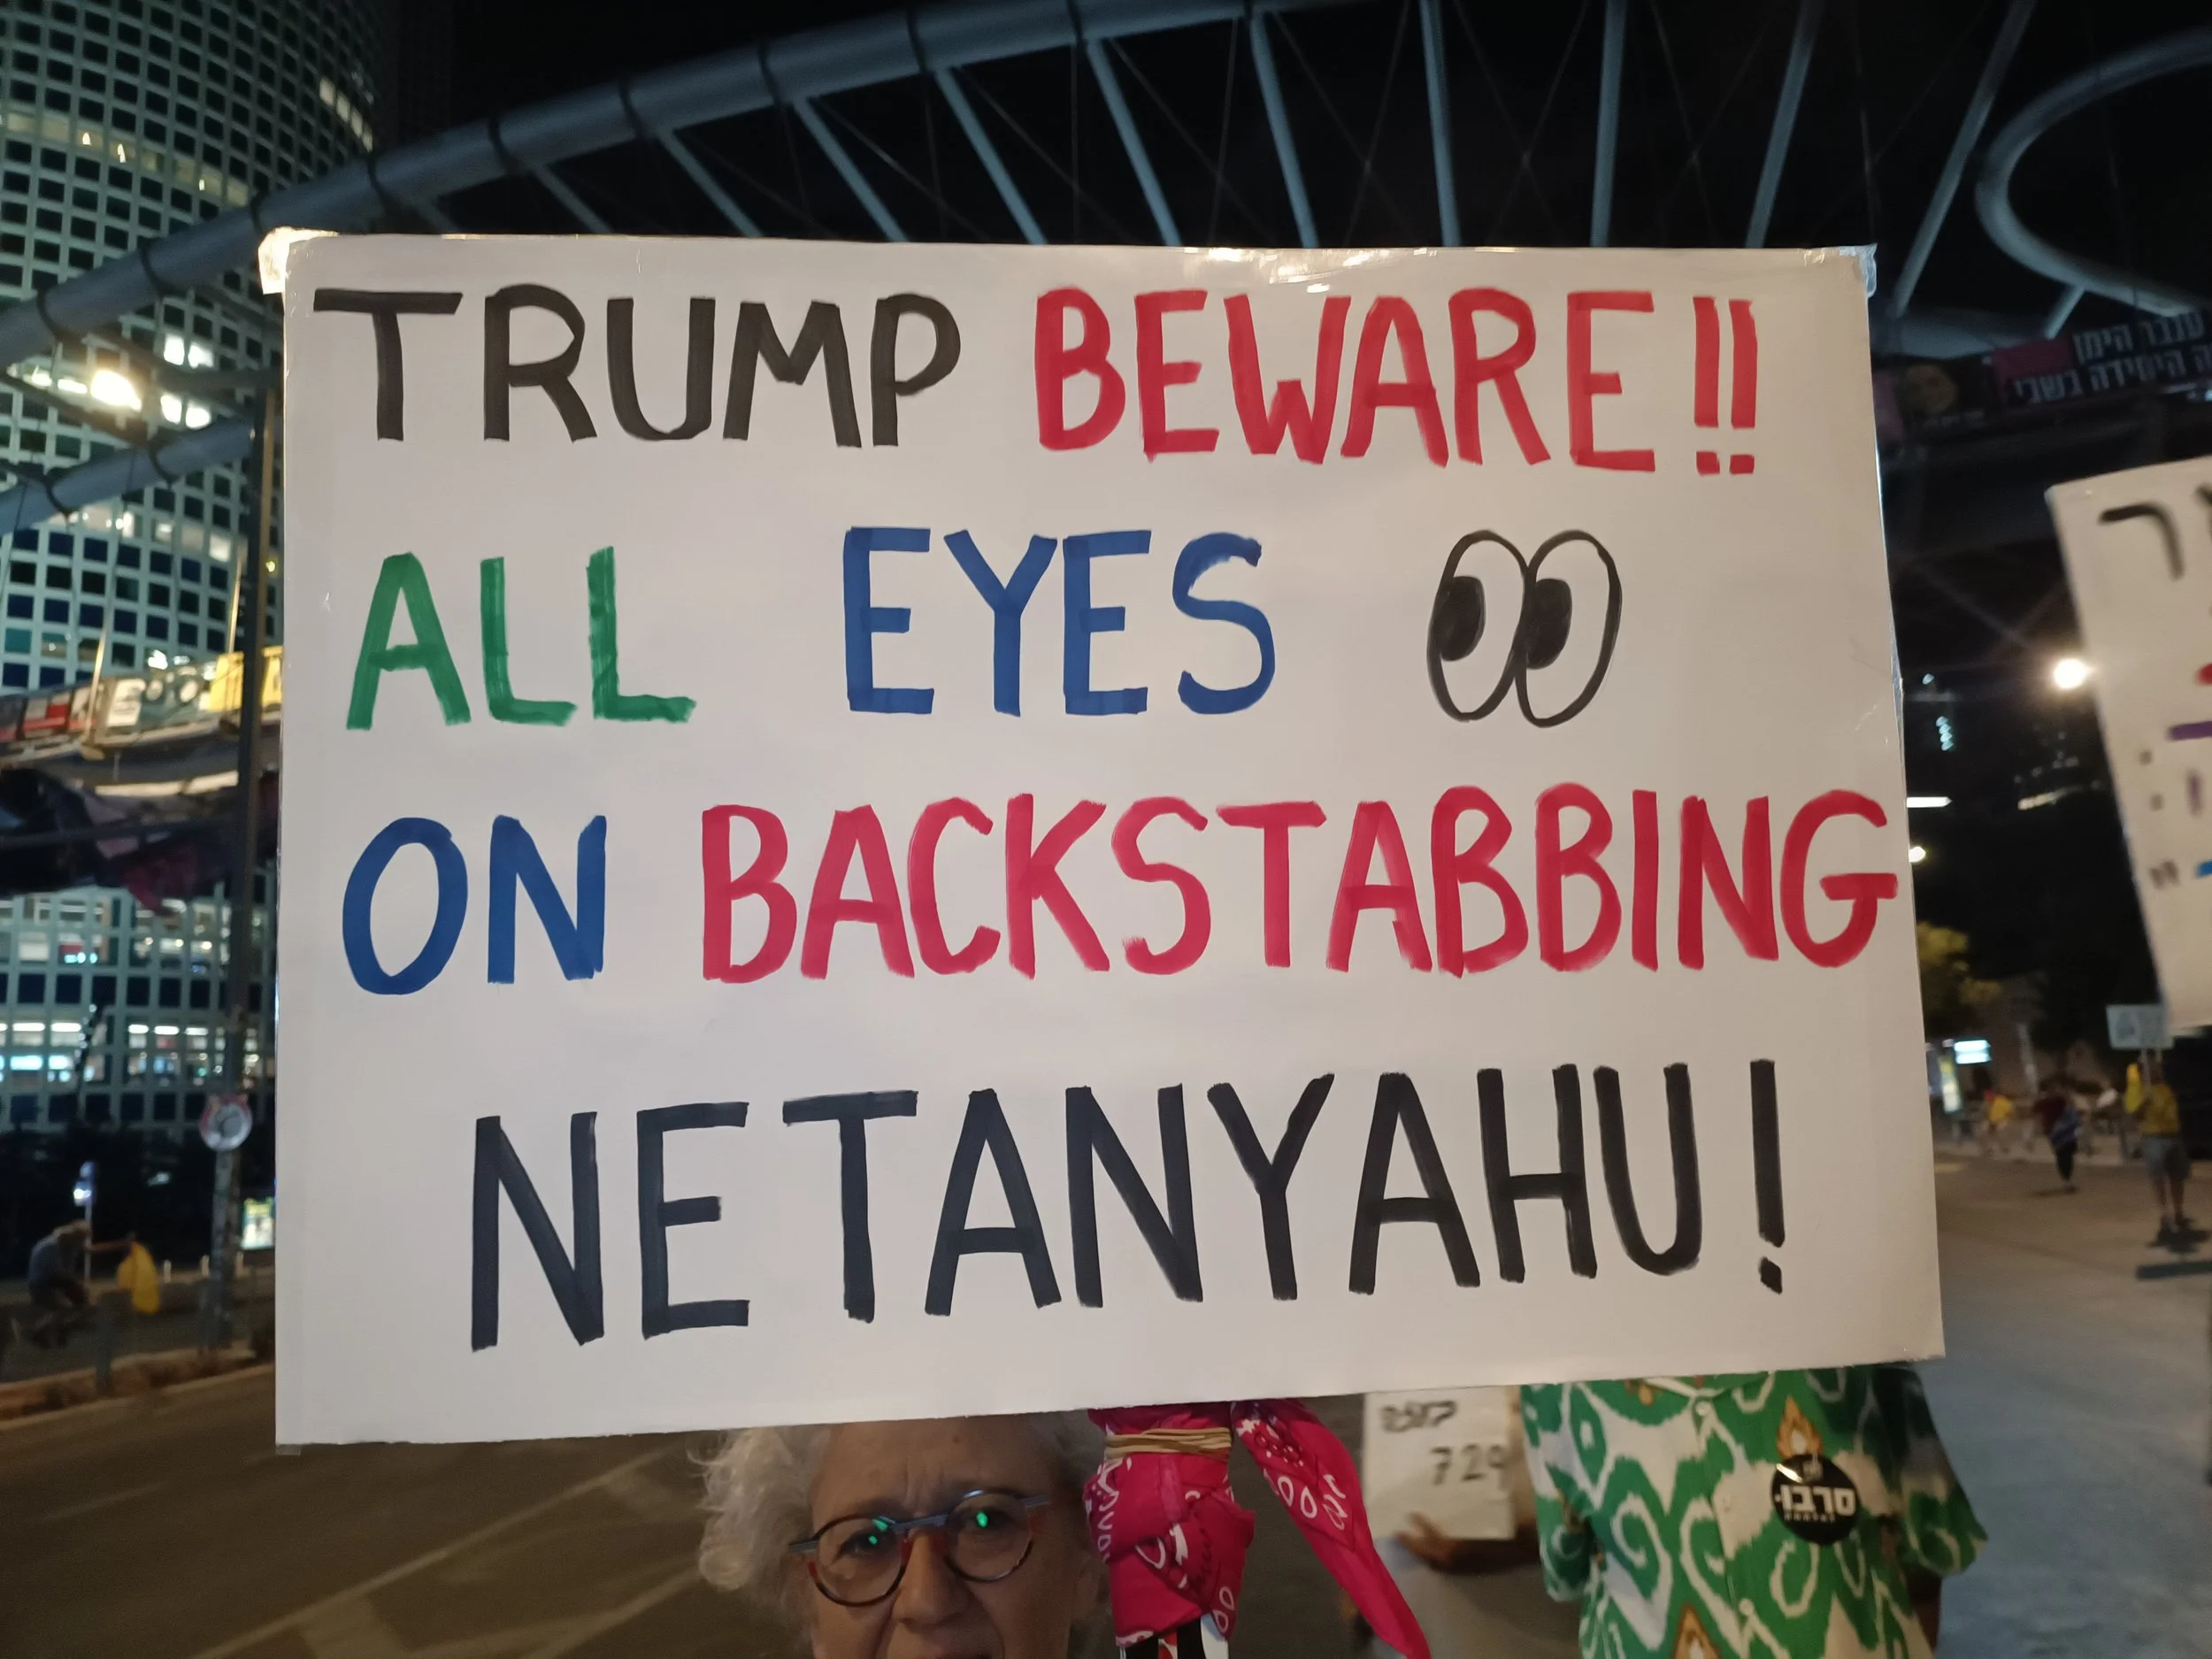 TRUMP BEWARE!!
ALL EYES
ON BACKSTABBING
NETANYAHU!
ענבר הימן
היחידה בשבי
729
סרבו